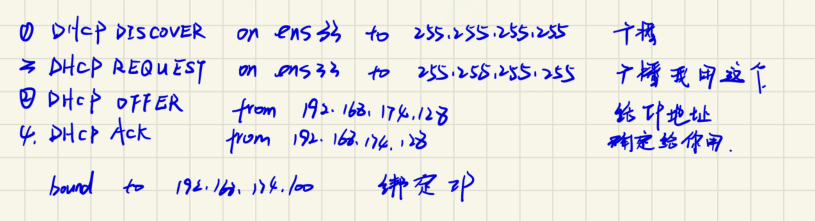 ① DHCP DISCOVER on ens33 to 255.255.255.255 广播
3 DHCP REQUEST on ens33 to 255.255.255.255 广播我用这个
② DHCP OFFER from 192.168.174.128 给IP地址
4. DHCP ACK from 192.168.174.128 确定给你用.
bound to 192.168.174.100 绑定IP